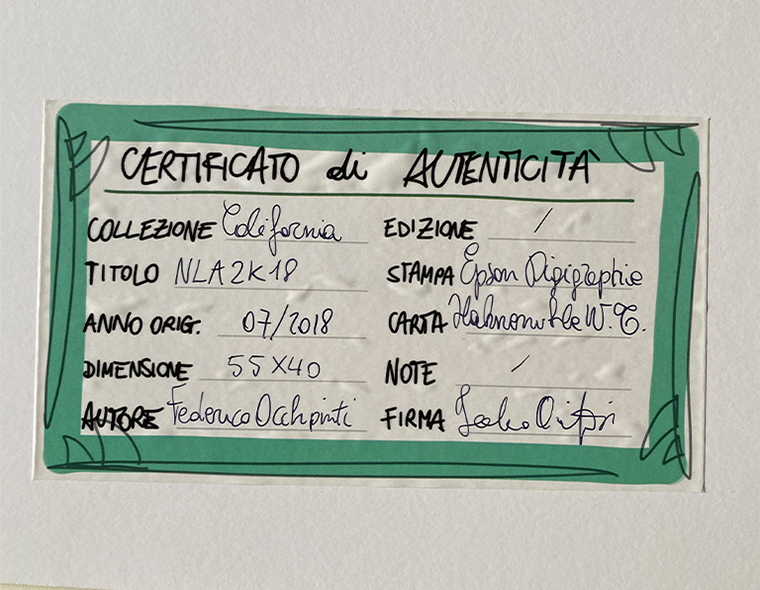 CERTIFICATO di AUTENTICITÀ
COLLEZIONE California
TITOLO NLA2K18
ANNO ORIG. 07/2018
DIMENSIONE 55X40
AUTORE Federico Occhipinti
EDIZIONE /
STAMPA Epson Digigraphie
CARTA W.C.
NOTE /
FIRMA